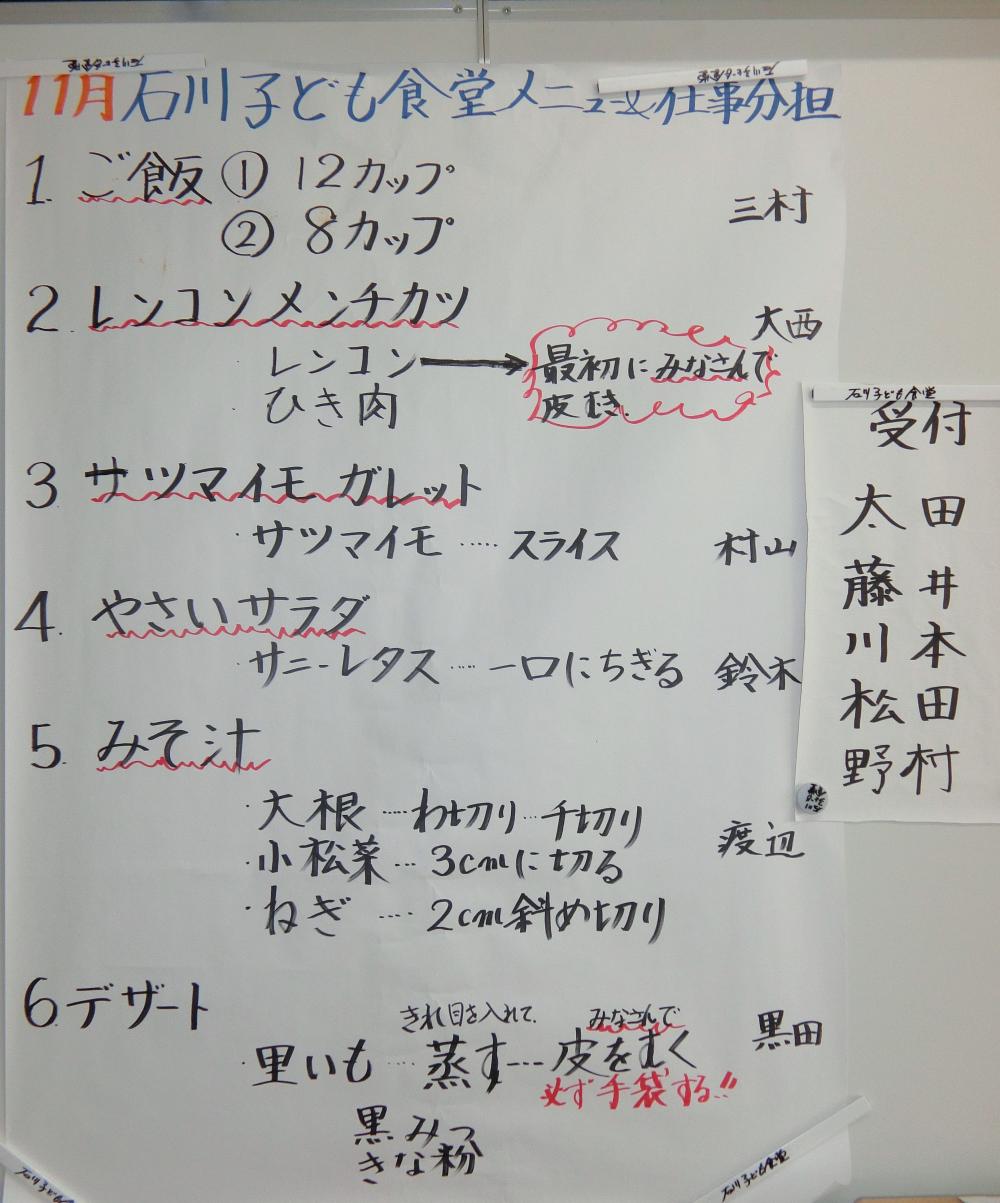 11月石川子ども食堂メニューと仕事分担
1. ご飯 ① 12カップ
② 8カップ
三村
2. レンコンメンチカツ
大西
レンコン→最初にみなさんで
皮むき.
ひき肉
3 サツマイモガレット
・サツマイモ……スライス 村山
4. やさいサラダ
・サニーレタス……一口にちぎる 鈴木
5. みそ汁
・大根……わ切り…千切り
渡辺
・小松菜…3cmに切る
・ねぎ……2cm斜め切り
6. デザート
きれ目を入れて. みなさんで
・里いも…蒸す…皮をむく
黒田
必ず手袋する!!
黒みつ
きな粉
石川子ども食堂
受付
太田
藤井
川本
松田
野村
石川子ども食堂